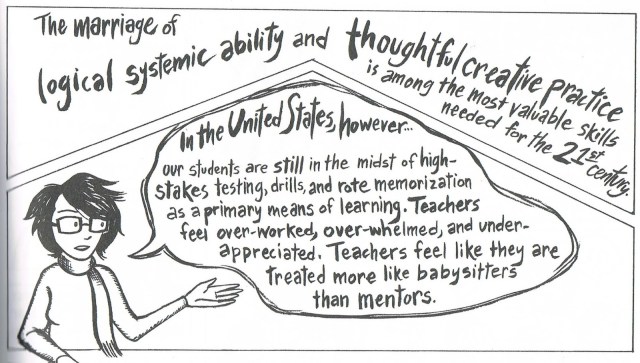 The marriage of
logical systemic ability and thoughtful creative practice
is among the most valuable skills
needed for the 21st century.
In the United States, however...
our students are still in the midst of high-
stakes testing, drills, and rote memorization
as a primary means of learning. Teachers
feel over-worked, over-whelmed, and under-
appreciated. Teachers feel like they are
treated more like babysitters
than mentors.